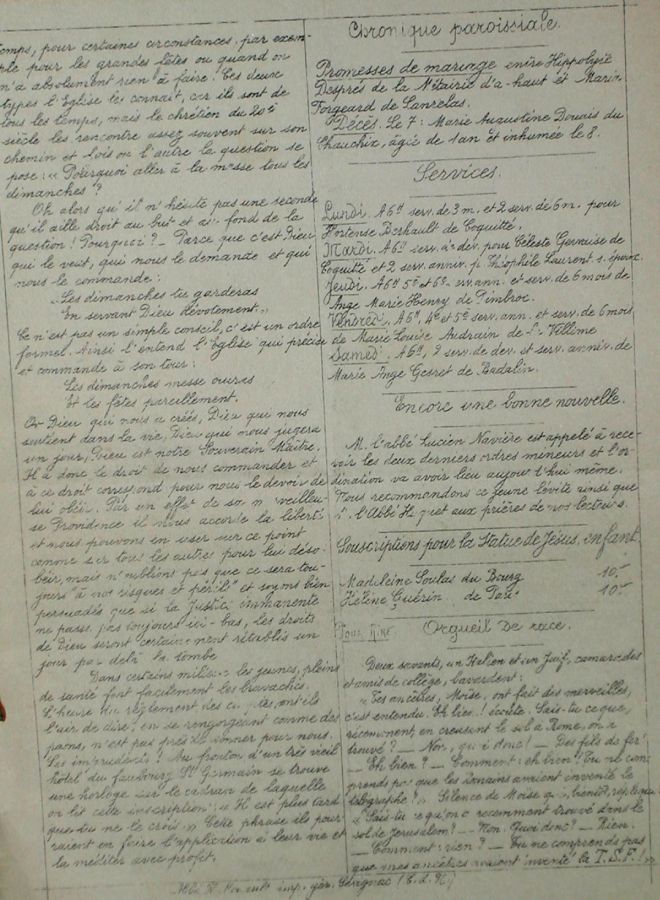 temps, pour certaines circonstances, par exem-
ple pour les grandes fêtes ou quand on
n'a absolument rien à faire. Ces deux
types l'Eglise les connaît, car ils sont de
tous les temps, mais le chrétien du 20è
siècle les rencontre assez souvent sur son
chemin et lois on l'autre la question se
pose : « Pourquoi aller à la messe tous les
dimanches ?
Oh alors qu'il n'hésite pas une seconde
qu'il aille droit au but et au fond de la
question ! Pourquoi ? — Parce que c'est Dieu
qui le veut, qui nous le demande et qui
nous le commande :
« Les dimanches tu garderas
En servant Dieu dévotement. »
Ce n'est pas un simple conseil, c'est un ordre
formel. Ainsi l'entend l'Eglise qui précise
et commande à son tour :
Les dimanches messe ouiras
Et les fêtes pareillement.
Or Dieu qui nous a créés, Dieu que nous
soutient dans la vie, Dieu qui nous jugera
un jour, Dieu est notre Souverain Maître.
Il a donc le droit de nous commander et
à ce droit correspond pour nous le devoir de
lui obéir. Par un effet de sa merveilleu-
se Providence il nous accorde la liberté
et nous pouvons en user sur ce point
comme sur tous les autres pour lui déso-
béir, mais n'oublions pas que ce sera tou-
jours "à nos risques et périls" et soyons bien
persuadés que si la Justice immanente
ne passe pas toujours ici-bas, les droits
de Dieu seront certainement rétablis un
jour par delà la tombe
Dans certains milieux les jeunes, pleins
de santé font facilement les bravaches.
L'heure du règlement des comptes, ont-ils
l'air de dire, en se rengorgeant comme des
paons, n'est pas près de sonner pour nous.
Les imprudents ! Au fronton d'un très vieil
hôtel du faubourg St Germain se trouve
une horloge sur le cadran de laquelle
on lit cette inscription : « Il est plus tard
que tu ne le crois » Cette phrase ils pour-
raient en faire l'application à leur vie et
la méditer avec profit.
Chronique paroissiale.
Promesses de mariage entre Hippolyte
Després de la Métairie d'a-haut et Marie
Forgeard de Lanrelas.
Décès. Le 7 : Marie Augustine Douais du
Chauchix, agée de 1 an et inhumée le 8.
Services.
Lundi. A 6H serv. de 3 m. et 2 serv. de 6 m. pour
Hortense Berhault de Coquitté.
Mardi. A 6H serv. de dév. pour Céleste Germuse de
Coquitté et 2 serv. anniv. p. Théophile Laurent s. époux
Jeudi. A 6H 5è et 6è serv. ann. et serv. de 6 mois de
Ange Marie Henry de Pimbroc.
Vendredi. A 6H, 4è et 5è serv. ann. et serv. de 6 mois
de Marie Louise Audrain de la Villème
Samedi. A 6H, 2 serv. de dev. et serv. anniv. de
Marie Ange Gesret de Badalin.
Encore une bonne nouvelle.
M. l'abbé Lucien Navière est appelé à rece-
voir les deux derniers ordres mineurs et l'or-
dination va avoir lieu aujourd'hui même.
Nous recommandons ce jeune lévite ainsi que
l'Abbé aux prières de nos lecteurs.
Souscriptions pour la Statue de Jésus, enfant
Madeleine Soulas du Bourg 10.-
Hélène Guérin de Paris 10.-
Pour Rire Orgueil De race.
Deux savants, un Italien et un Juif, camarades
et amis de collège, bavardent :
« Tes ancêtres, Moïse, ont fait des merveilles,
c'est entendu. Eh bien ! écoute. Sais-tu ce que,
récemment, en creusant le sol à Rome, on a
trouvé ? — Non, quoi donc ! — Des fils de fer !
— Eh bien ? — Comment : eh bien ! Tu ne com
prends pas que les Romains avaient inventé le
télégraphe ? » Silence de Moïse qui, bientôt, réplique
« Sais-tu ce qu'on a récemment trouvé dans le
sol de Jérusalem ? — Non. Quoi donc ! — Rien.
— Comment : rien ? — Tu ne comprends pas
que mes ancêtres avaient inventé la T.S.F. ! »
imp. gér. Sévignac (C.d.N.)